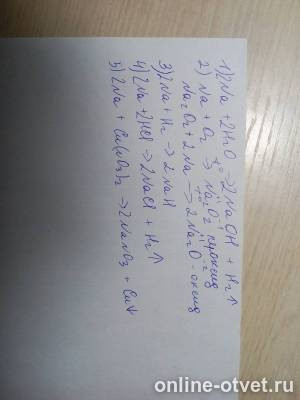 1) 2Na + 2H₂O → 2NaOH + H₂↑
2) Na + O₂ →t° Na₂O₂ пироксид
Na₂O₂ + 2Na →t° 2Na₂O - оксид
3) 2Na + H₂ → 2NaH
4) 2Na + 2HCl → 2NaCl + H₂↑
5) 2Na + Cu(NO₃)₂ → 2NaNO₃ + Cu↓
online-otvet.ru